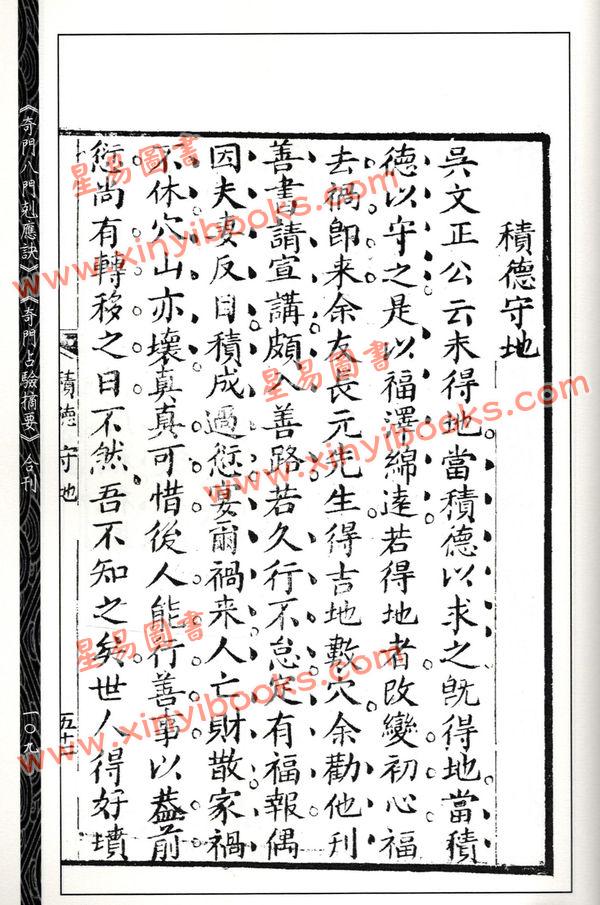 積德守地
吳文正公云未得地當積德以求之既得地當積
德以守之是以福澤綿遠若得地者改變初心福
去禍即来余友長元先生得吉地數穴余勸他刊
善書請宣講頗入善路若久行不怠定有福報偶
因夫妻反目積成過愆莫爾禍来人亡財散家禍
不休穴山亦壞真真可惜後人能行善事以蓋前
愆尚有轉移之日不然吾不知之矣世人得好墳
積德守地
五十二
《奇門八門剋應訣》《奇門占驗摘要》合刊
一〇九
星易圖書
www.xinyibooks.com
星易圖書
www.xinyibooks.com
星易圖書
www.xinyibooks.com